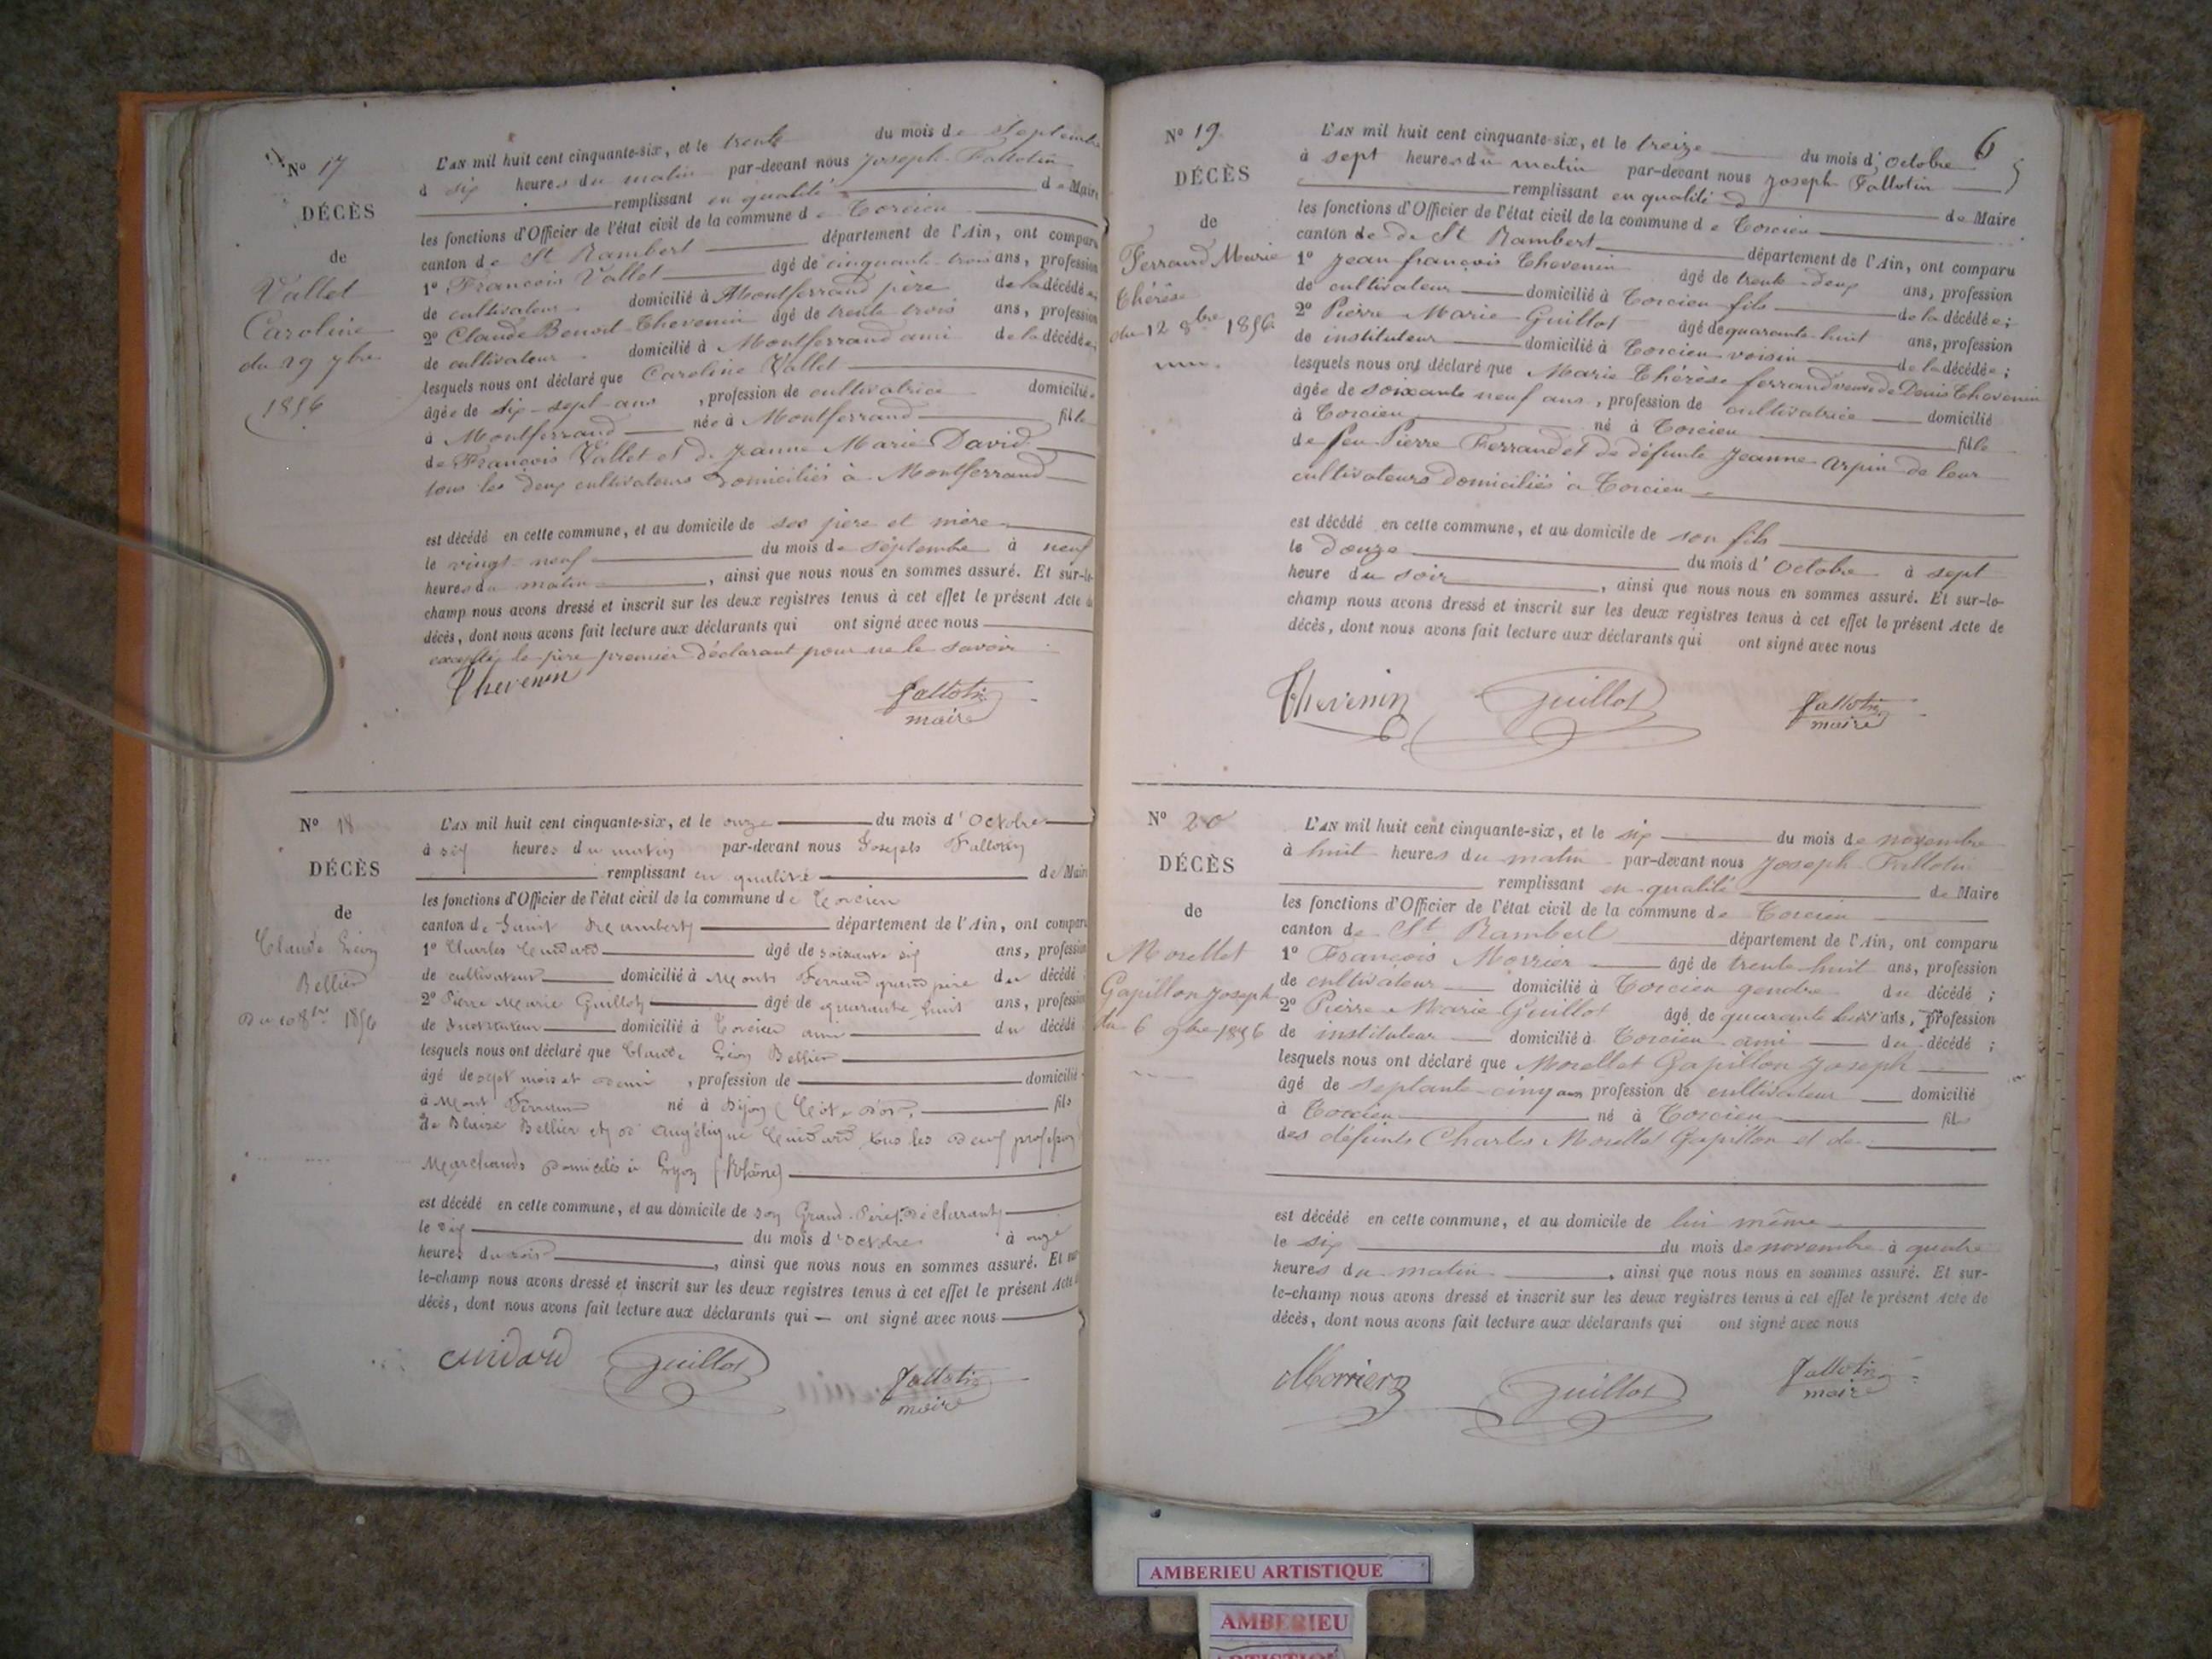 Nº 17
DÉCÈS
de
Vallet
Caroline
du 29 7bre
1856
L'AN mil huit cent cinquante-six, et le trente du mois de Septembre
à six heures du matin par-devant nous Joseph Fallotin
remplissant en qualité de Maire
les fonctions d'Officier de l'état civil de la commune de Torcieu
canton de St Rambert département de l'Ain, ont comparu
1º François Vallet âgé de cinquante-trois ans, profession
de cultivateur domicilié à Montferrand père de la décédée
2º Claude Benoit Thevenin âgé de trente trois ans, profession
de cultivateur domicilié à Montferrand ami de la décédée
lesquels nous ont déclaré que Caroline Vallet
âgée de dix-sept ans, profession de cultivatrice domiciliée
à Montferrand née à Montferrand fille
de François Vallet et de Jeanne Marie David
tous les deux cultivateurs domiciliés à Montferrand
est décédé en cette commune, et au domicile de ses père et mère
le vingt-neuf du mois de septembre à neuf
heures du matin, ainsi que nous nous en sommes assuré. Et sur-le-
champ nous avons dressé et inscrit sur les deux registres tenus à cet effet le présent Acte de
décès, dont nous avons fait lecture aux déclarants qui ont signé avec nous
excepté le père premier déclarant pour ne le savoir
Thevenin Fallotin
maire
Nº 18
DÉCÈS
de
Claude Léon
Bellier
Du 10 8bre 1856
L'AN mil huit cent cinquante-six, et le onze du mois d'Octobre
à six heures du matin par-devant nous Joseph Fallotin
remplissant en qualité de Maire
les fonctions d'Officier de l'état civil de la commune de Torcieu
canton de Saint Rambert département de l'Ain, ont comparu
1º Charles Cuidard âgé de soixante six ans, profession
de cultivateur domicilié à Mont Ferrand grand père du décédé
2º Pierre Marie Guillot âgé de quarante huit ans, profession
de Instituteur domicilié à Torcieu ami du décédé
lesquels nous ont déclaré que Claude Léon Bellier
âgé de sept mois et demi, profession de domicilié
à Mont Ferrand né à Dijon (Côte d'or) fils
de Blaise Bellier et d'Angélique Cuidard tous les deux profession
Marchands domicilés à Lyon (Rhône)
est décédé en cette commune, et au domicile de son Grand-Père Déclarant
le dix du mois d'octobre à onze
heures du soir, ainsi que nous nous en sommes assuré. Et sur-
le-champ nous avons dressé et inscrit sur les deux registres tenus à cet effet le présent Acte de
décès, dont nous avons fait lecture aux déclarants qui — ont signé avec nous
Cuidard Guillot Fallotin
maire
6
Nº 19
DÉCÈS
de
Ferrand Marie
Thérèse
du 12 8bre 1856
L'AN mil huit cent cinquante-six, et le treize du mois d'Octobre
à sept heures du matin par-devant nous Joseph Fallotin
remplissant en qualité de Maire
les fonctions d'Officier de l'état civil de la commune de Torcieu
canton de de St Rambert département de l'Ain, ont comparu
1º Jean françois Thevenin âgé de trente-deux ans, profession
de cultivateur domicilié à Torcieu fils de la décédée;
2º Pierre Marie Guillot âgé de quarante huit ans, profession
de instituteur domicilié à Torcieu voisin de la décédée;
lesquels nous ont déclaré que Marie Thérèse ferrand veuve de Denis Thevenin
âgée de soixante neuf ans, profession de cultivatrice domicilié
à Torcieu né à Torcieu fille
de feu Pierre Ferrand et de défunte Jeanne Arpin de leur
cultivateurs domiciliés à Torcieu
est décédé en cette commune, et au domicile de son fils
le douze du mois d'Octobre à sept
heure du soir, ainsi que nous nous en sommes assuré. Et sur-le-
champ nous avons dressé et inscrit sur les deux registres tenus à cet effet le présent Acte de
décès, dont nous avons fait lecture aux déclarants qui ont signé avec nous
Thevenin Guillot Fallotin
maire
Nº 20
DÉCÈS
de
Morellet
Gapillon Joseph
du 6 9bre 1856
L'AN mil huit cent cinquante-six, et le six du mois de novembre
à huit heures du matin par-devant nous Joseph Fallotin
remplissant en qualité de Maire
les fonctions d'Officier de l'état civil de la commune de Torcieu
canton de St Rambert département de l'Ain, ont comparu
1º François Morrier âgé de trente huit ans, profession
de cultivateur domicilié à Torcieu gendre du décédé;
2º Pierre Marie Guillot âgé de quarante huit ans, profession
de instituteur domicilié à Torcieu ami du décédé;
lesquels nous ont déclaré que Morellet Gapillon Joseph
âgé de septante-cinq ans profession de cultivateur domicilié
à Torcieu né à Torcieu fils
des défunts Charles Morellet Gapillon et de
est décédé en cette commune, et au domicile de lui même
le six du mois de novembre à quatre
heures du matin, ainsi que nous nous en sommes assuré. Et sur-
le-champ nous avons dressé et inscrit sur les deux registres tenus à cet effet le présent Acte de
décès, dont nous avons fait lecture aux déclarants qui ont signé avec nous
Morrier Guillot Fallotin
maire
AMBERIEU ARTISTIQUE
AMBERIEU
ARTISTIQUE